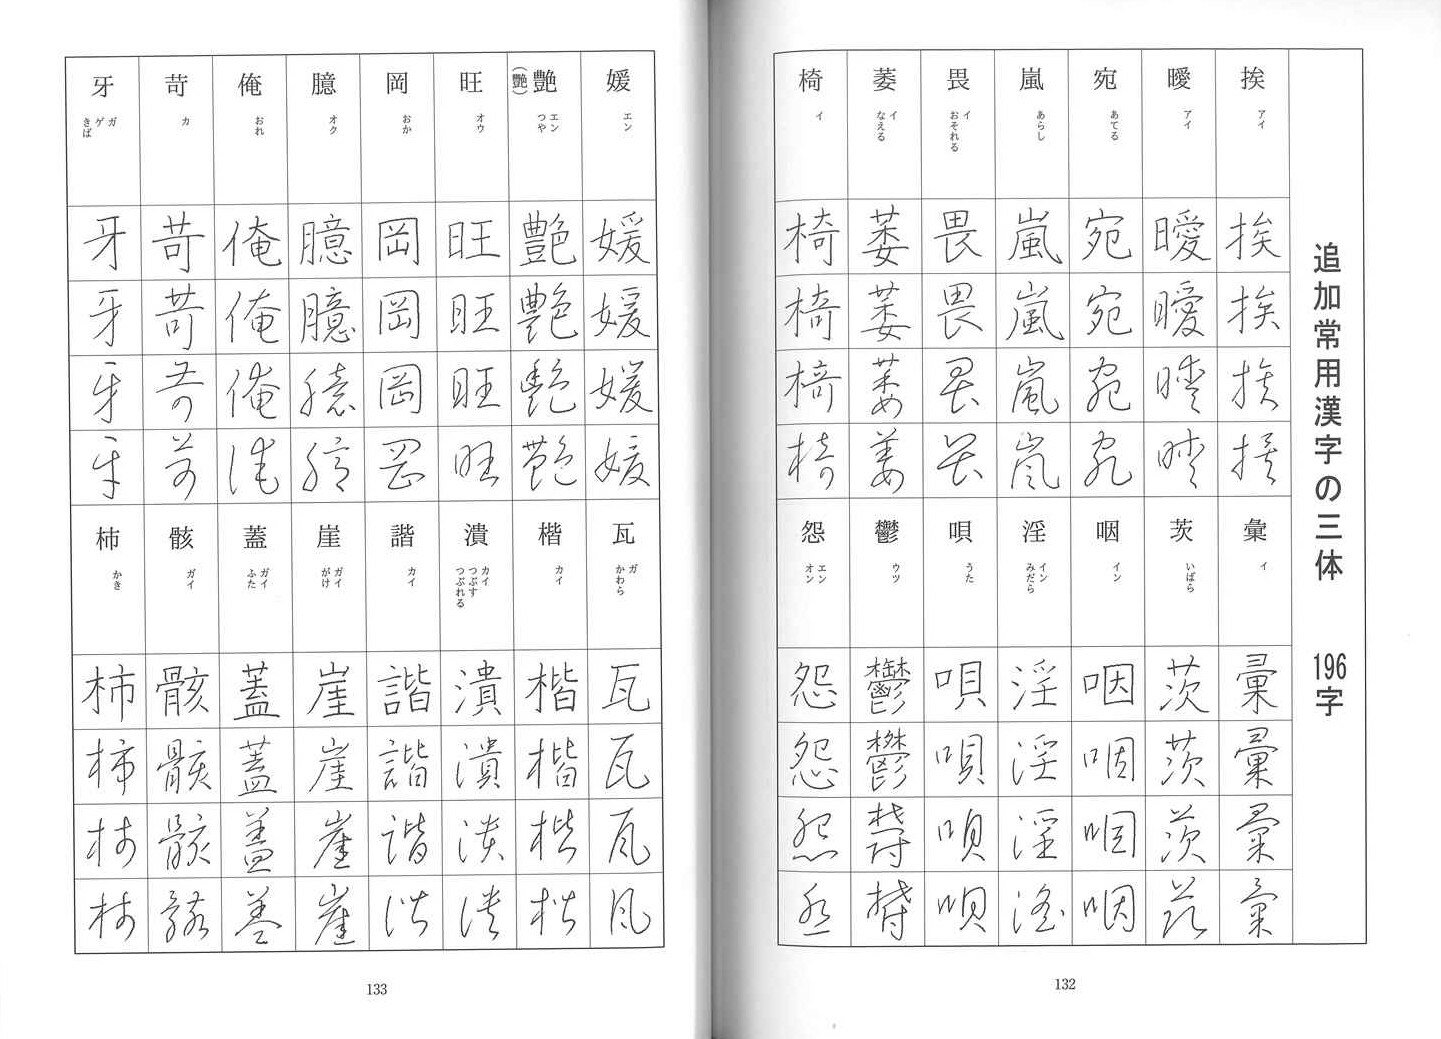 追加常用漢字の三体 196字
挨 アイ 挨 挨 挨 挨
曖 アイ 曖 曖 曖 曖
宛 あてる 宛 宛 宛 宛
嵐 あらし 嵐 嵐 嵐 嵐
畏 イ おそれる 畏 畏 畏 畏
萎 イ なえる 萎 萎 萎 萎
椅 イ 椅 椅 椅 椅
彙 イ 彙 彙 彙 彙
茨 いばら 茨 茨 茨 茨
咽 イン 咽 咽 咽 咽
淫 イン みだら 淫 淫 淫 淫
唄 うた 唄 唄 唄 唄
鬱 ウツ 鬱 鬱 鬱 鬱
怨 エン オン 怨 怨 怨 怨
132
媛 エン 媛 媛 媛 媛
艶(艷) エン つや 艶 艶 艶 艶
旺 オウ 旺 旺 旺 旺
岡 おか 岡 岡 岡 岡
臆 オク 臆 臆 臆 臆
俺 おれ 俺 俺 俺 俺
苛 カ 苛 苛 苛 苛
牙 ガ ゲ きば 牙 牙 牙 牙
瓦 ガ かわら 瓦 瓦 瓦 瓦
楷 カイ 楷 楷 楷 楷
潰 カイ つぶす つぶれる 潰 潰 潰 潰
諧 カイ 諧 諧 諧 諧
崖 ガイ がけ 崖 崖 崖 崖
蓋 ガイ ふた 蓋 蓋 蓋 蓋
骸 ガイ 骸 骸 骸 骸
柿 かき 柿 柿 柿 柿
133